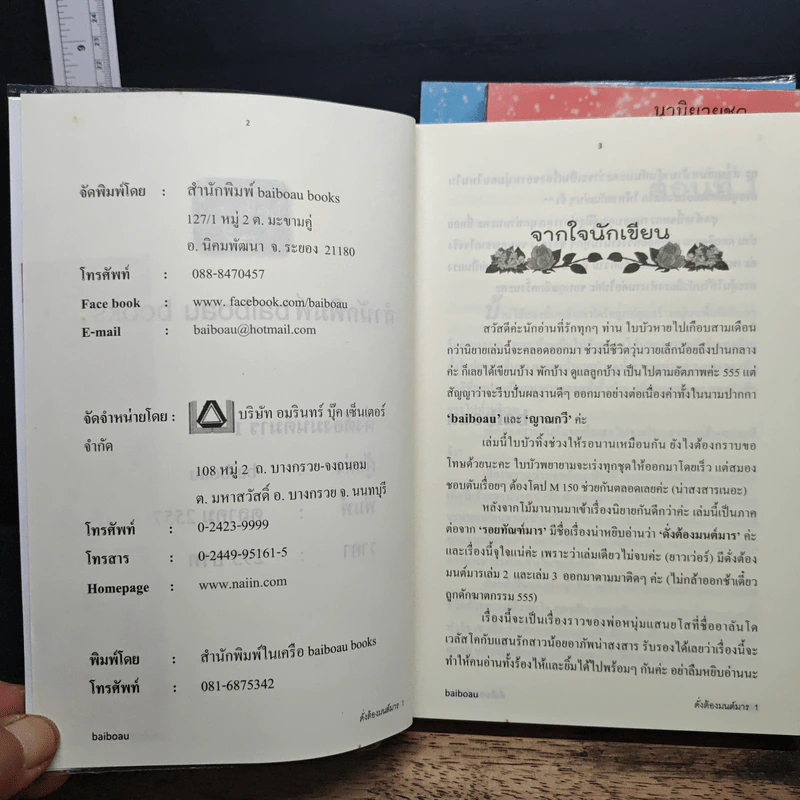 2
จัดพิมพ์โดย : สำนักพิมพ์ baiboau books
127/1 หมู่ 2 ต. มะขามคู่
อ. นิคมพัฒนา จ. ระยอง 21180
โทรศัพท์ : 088-8470457
Face book : www. facebook.com/baiboau
E-mail : baiboau@hotmail.com
จัดจำหน่ายโดย : บริษัท อมรินทร์ บุ๊ค เซ็นเตอร์
จำกัด
108 หมู่ 2 ถ. บางกรวย-จงถนอม
ต. มหาสวัสดิ์ อ. บางกรวย จ. นนทบุรี
โทรศัพท์ : 0-2423-9999
โทรสาร : 0-2449-95161-5
Homepage : www.naiin.com
พิมพ์โดย : สำนักพิมพ์ในเครือ baiboau books
โทรศัพท์ : 081-6875342
baiboau
ดั่งต้องมนต์มาร 1
3
จากใจนักเขียน
สวัสดีค่ะนักอ่านที่รักทุกๆ ท่าน ใบบัวหายไปเกือบสามเดือน
กว่านิยายเล่มนี้จะคลอดออกมา ช่วงนี้ชีวิตวุ่นวายเล็กน้อยถึงปานกลาง
ค่ะ ก็เลยได้เขียนบ้าง พักบ้าง ดูแลลูกบ้าง เป็นไปตามอัตภาพค่ะ 555 แต่
สัญญาว่าจะรีบปั่นผลงานดีๆ ออกมาอย่างต่อเนื่องค่าทั้งในนามปากกา
‘baiboau’ และ ‘ญาณกวี’ ค่ะ
เล่มนี้ใบบัวทิ้งช่วงให้รอนานเหมือนกัน ยังไงต้องกราบขอ
โทษด้วยนะคะ ใบบัวพยายามจะเร่งทุกชุดให้ออกมาโดยเร็ว แต่สมอง
ชอบตันเรื่อยๆ ต้องโดป M 150 ช่วยกันตลอดเลยค่ะ (น่าสงสารเนอะ)
หลังจากโม้มานานมาเข้าเรื่องนิยายกันดีกว่าค่ะ เล่มนี้เป็นภาค
ต่อจาก ‘รอยทัณฑ์มาร’ มีชื่อเรื่องน่าหยิบอ่านว่า ‘ดั่งต้องมนต์มาร’ ค่ะ
และเรื่องนี้จุใจแน่ค่ะ เพราะว่าเล่มเดียวไม่จบค่ะ (ยาวเว่อร์) มีดั่งต้อง
มนต์มารเล่ม 2 และเล่ม 3 ออกมาตามมาติดๆ ค่ะ (ไม่กล้าออกช้าเดี๋ยว
ถูกดักฆาตกรรม 555)
เรื่องนี้จะเป็นเรื่องราวของพ่อหนุ่มแสนยโสที่ชื่ออาลันโด
เวลัสโคกับแสนรักสาวน้อยอาภัพน่าสงสาร รับรองได้เลยว่าเรื่องนี้จะ
ทำให้คนอ่านทั้งร้องไห้และยิ้มได้ไปพร้อมๆ กันค่ะ อย่าลืมหยิบอ่านนะ
baiboau
ดั่งต้องมนต์มาร 1